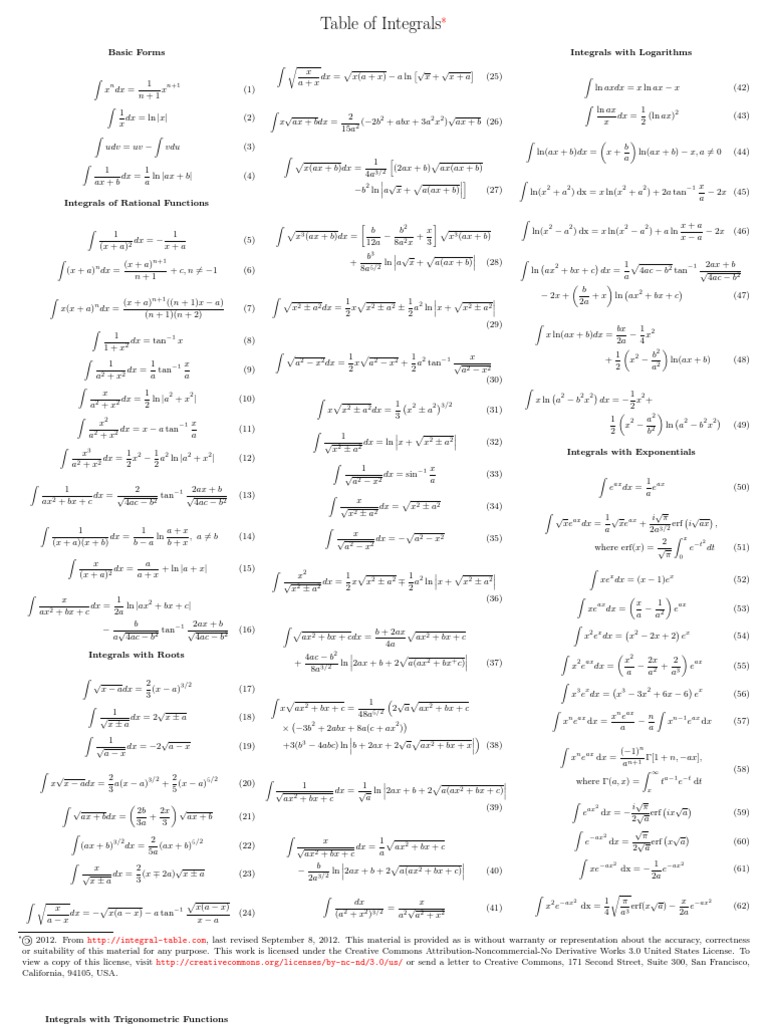 Table of Integrals*
Basic Forms
∫ xⁿdx = 1/(n+1) xⁿ⁺¹ (1)
∫ 1/x dx = ln|x| (2)
∫ udv = uv − ∫ vdu (3)
∫ 1/(ax+b) dx = 1/a ln|ax + b| (4)
Integrals of Rational Functions
∫ 1/(x+a)² dx = −1/(x+a) (5)
∫ (x + a)ⁿdx = (x+a)ⁿ⁺¹/(n+1) + c, n ≠ −1 (6)
∫ x(x + a)ⁿdx = (x+a)ⁿ⁺¹((n+1)x−a)/((n+1)(n+2)) (7)
∫ 1/(1+x²) dx = tan⁻¹ x (8)
∫ 1/(a²+x²) dx = 1/a tan⁻¹ x/a (9)
∫ x/(a²+x²) dx = 1/2 ln|a² + x²| (10)
∫ x²/(a²+x²) dx = x − a tan⁻¹ x/a (11)
∫ x³/(a²+x²) dx = 1/2 x² − 1/2 a² ln|a² + x²| (12)
∫ 1/(ax²+bx+c) dx = 2/√(4ac−b²) tan⁻¹ (2ax+b)/√(4ac−b²) (13)
∫ 1/((x+a)(x+b)) dx = 1/(b−a) ln (a+x)/(b+x), a ≠ b (14)
∫ x/(x+a)² dx = a/(a+x) + ln|a + x| (15)
∫ x/(ax²+bx+c) dx = 1/2a ln|ax² + bx + c|
− b/(a√(4ac−b²)) tan⁻¹ (2ax+b)/√(4ac−b²) (16)
Integrals with Roots
∫ √(x−a) dx = 2/3 (x − a)^(3/2) (17)
∫ 1/√(x±a) dx = 2√(x±a) (18)
∫ 1/√(a−x) dx = −2√(a−x) (19)
∫ x√(x−a) dx = 2/3 a(x − a)^(3/2) + 2/5 (x − a)^(5/2) (20)
∫ √(ax+b) dx = (2b/3a + 2x/3) √(ax+b) (21)
∫ (ax + b)^(3/2) dx = 2/5a (ax + b)^(5/2) (22)
∫ x/√(x±a) dx = 2/3 (x ∓ 2a)√(x±a) (23)
∫ √(x/(a−x)) dx = −√(x(a−x)) − a tan⁻¹ √(x(a−x))/(x−a) (24)
∫ √(x/(a+x)) dx = √(x(a+x)) − a ln [√x + √(x+a)] (25)
∫ x√(ax+b) dx = 2/15a² (−2b² + abx + 3a²x²)√(ax+b) (26)
∫ √(x(ax+b)) dx = 1/4a^(3/2) [(2ax + b)√(ax(ax+b))
−b² ln |a√x + √(a(ax+b))|] (27)
∫ √(x³(ax+b)) dx = [b/12a − b²/8a²x + x/3] √(x³(ax+b))
+ b³/8a^(5/2) ln |a√x + √(a(ax+b))| (28)
∫ √(x²±a²) dx = 1/2 x√(x²±a²) ± 1/2 a² ln |x + √(x²±a²)|
(29)
∫ √(a²−x²) dx = 1/2 x√(a²−x²) + 1/2 a² tan⁻¹ x/√(a²−x²)
(30)
∫ x√(x²±a²) dx = 1/3 (x² ± a²)^(3/2) (31)
∫ 1/√(x²±a²) dx = ln |x + √(x²±a²)| (32)
∫ 1/√(a²−x²) dx = sin⁻¹ x/a (33)
∫ x/√(x²±a²) dx = √(x²±a²) (34)
∫ x/√(a²−x²) dx = −√(a²−x²) (35)
∫ x²/√(x²±a²) dx = 1/2 x√(x²±a²) ∓ 1/2 a² ln |x + √(x²±a²)|
(36)
∫ √(ax²+bx+c) dx = (b+2ax)/4a √(ax²+bx+c)
+ (4ac−b²)/8a^(3/2) ln |2ax + b + 2√(a(ax²+bx⁺c))| (37)
∫ x√(ax²+bx+c) = 1/48a^(5/2) (2√a √(ax²+bx+c)
× (−3b² + 2abx + 8a(c + ax²))
+3(b³ − 4abc) ln |b + 2ax + 2√a √(ax²+bx+x)|) (38)
∫ 1/√(ax²+bx+c) dx = 1/√a ln |2ax + b + 2√(a(ax²+bx+c))|
(39)
∫ x/√(ax²+bx+c) dx = 1/a √(ax²+bx+c)
− b/2a^(3/2) ln |2ax + b + 2√(a(ax²+bx+c))| (40)
∫ dx/(a²+x²)^(3/2) = x/(a²√(a²+x²)) (41)
Integrals with Logarithms
∫ ln axdx = x ln ax − x (42)
∫ ln ax/x dx = 1/2 (ln ax)² (43)
∫ ln(ax + b)dx = (x + b/a) ln(ax + b) − x, a ≠ 0 (44)
∫ ln(x² + a²) dx = x ln(x² + a²) + 2a tan⁻¹ x/a − 2x (45)
∫ ln(x² − a²) dx = x ln(x² − a²) + a ln (x+a)/(x−a) − 2x (46)
∫ ln (ax² + bx + c) dx = 1/a √(4ac−b²) tan⁻¹ (2ax+b)/√(4ac−b²)
− 2x + (b/2a + x) ln (ax² + bx + c) (47)
∫ x ln(ax + b)dx = bx/2a − 1/4 x²
+ 1/2 (x² − b²/a²) ln(ax + b) (48)
∫ x ln (a² − b²x²) dx = −1/2 x²+
1/2 (x² − a²/b²) ln (a² − b²x²) (49)
Integrals with Exponentials
∫ e^(ax) dx = 1/a e^(ax) (50)
∫ √x e^(ax) dx = 1/a √x e^(ax) + i√π/2a^(3/2) erf (i√(ax)),
where erf(x) = 2/√π ∫₀ˣ e^(−t²) dt (51)
∫ xeˣdx = (x − 1)eˣ (52)
∫ xe^(ax) dx = (x/a − 1/a²) e^(ax) (53)
∫ x²eˣdx = (x² − 2x + 2) eˣ (54)
∫ x²e^(ax) dx = (x²/a − 2x/a² + 2/a³) e^(ax) (55)
∫ x³eˣdx = (x³ − 3x² + 6x − 6) eˣ (56)
∫ xⁿe^(ax) dx = xⁿe^(ax)/a − n/a ∫ xⁿ⁻¹e^(ax) dx (57)
∫ xⁿe^(ax) dx = (−1)ⁿ/aⁿ⁺¹ Γ[1 + n, −ax],
where Γ(a, x) = ∫ₓ^∞ t^(a−1) e^(−t) dt (58)
∫ e^(ax²) dx = −i√π/2√a erf (ix√a) (59)
∫ e^(−ax²) dx = √π/2√a erf (x√a) (60)
∫ xe^(−ax²) dx = −1/2a e^(−ax²) (61)
∫ x²e^(−ax²) dx = 1/4 √(π/a³) erf(x√a) − x/2a e^(−ax²) (62)
* © 2012. From http://integral-table.com, last revised September 8, 2012. This material is provided as is without warranty or representation about the accuracy, correctness
or suitability of this material for any purpose. This work is licensed under the Creative Commons Attribution-Noncommercial-No Derivative Works 3.0 United States License. To
view a copy of this license, visit http://creativecommons.org/licenses/by-nc-nd/3.0/us/ or send a letter to Creative Commons, 171 Second Street, Suite 300, San Francisco,
California, 94105, USA.
Integrals with Trigonometric Functions